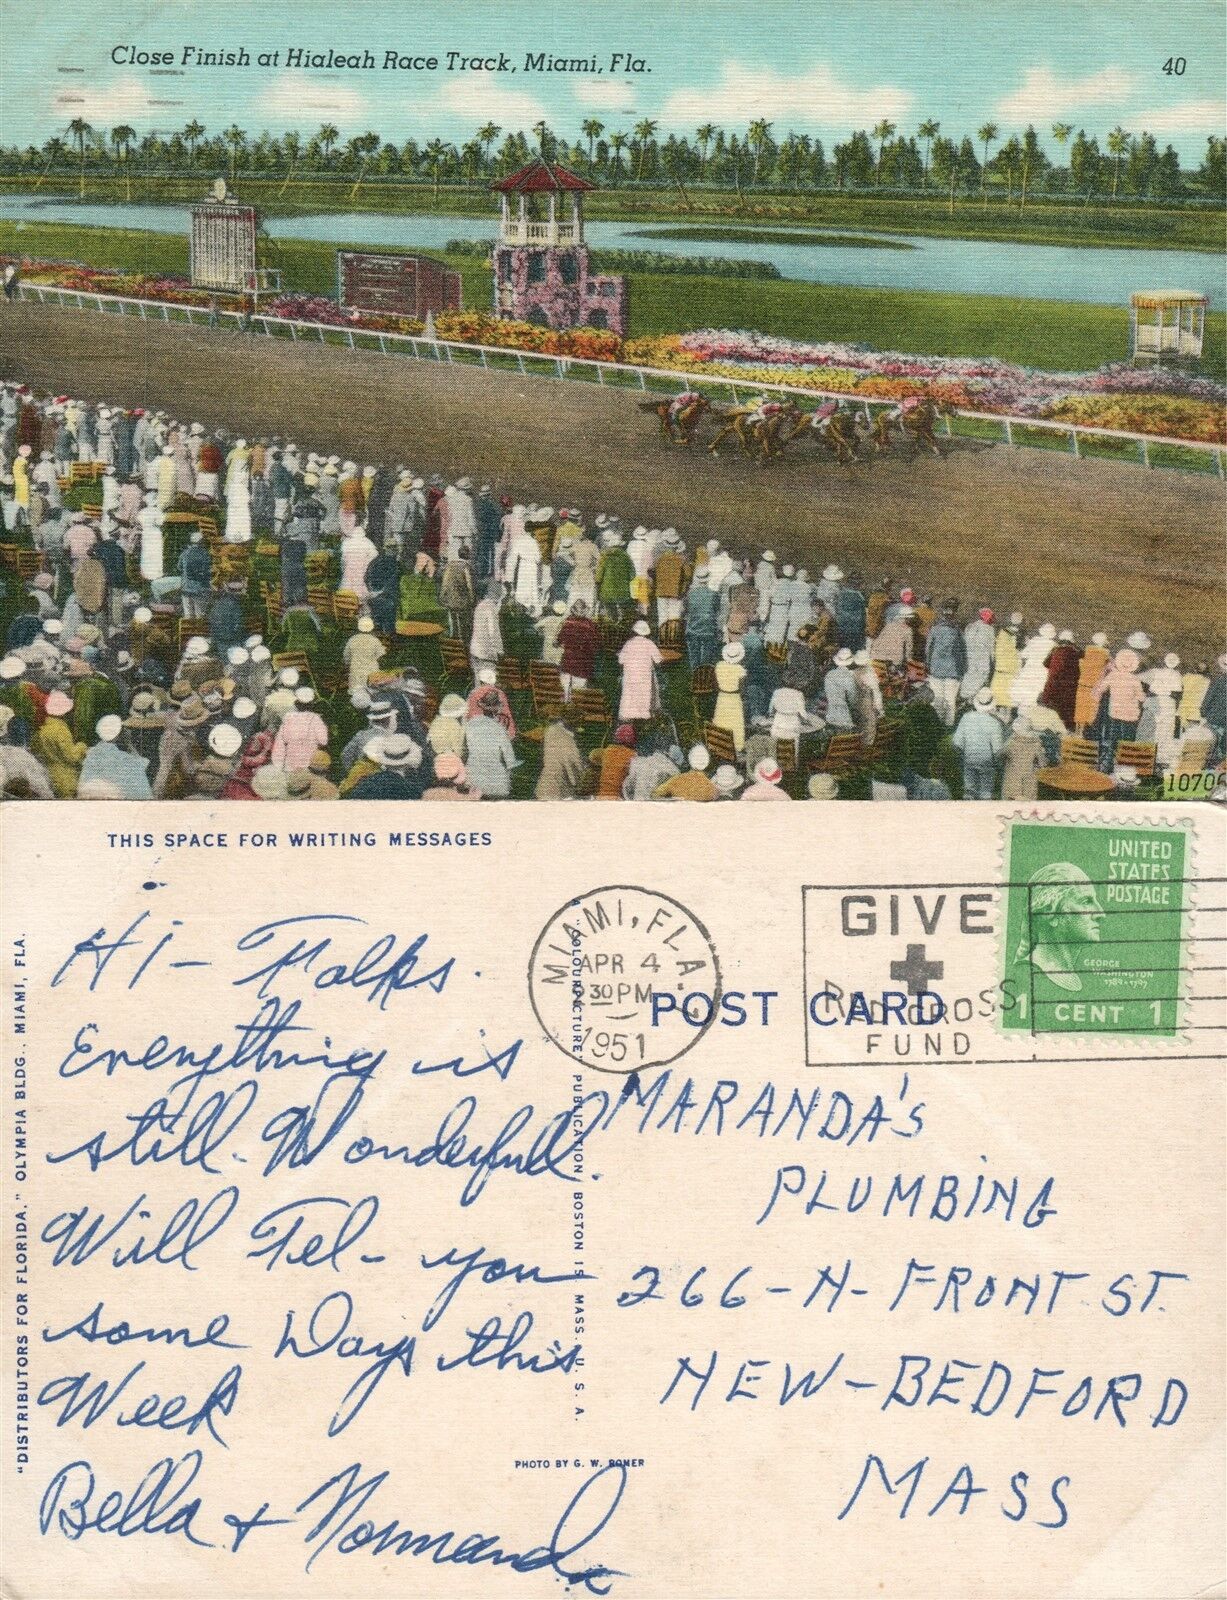 Close Finish at Hialeah Race Track, Miami, Fla.
40
10706
THIS SPACE FOR WRITING MESSAGES
Hi - Folks.
Everything is
still. Wonderful.
Will Tel- you
some Days this
Week
Bella + Normand
"DISTRIBUTORS FOR FLORIDA." OLYMPIA BLDG., MIAMI, FLA.
"COLOURPICTURE" PUBLICATION, BOSTON 15, MASS. U. S. A.
PHOTO BY G. W. ROMER
MIAMI, FLA.
APR 4
930 PM
1951
GIVE
RED CROSS
FUND
UNITED
STATES
POSTAGE
GEORGE
WASHINGTON
1789-1797
1 CENT 1
POST CARD
MARANDA's
PLUMBING
266-N- FRONT ST.
NEW-BEDFORD
MASS